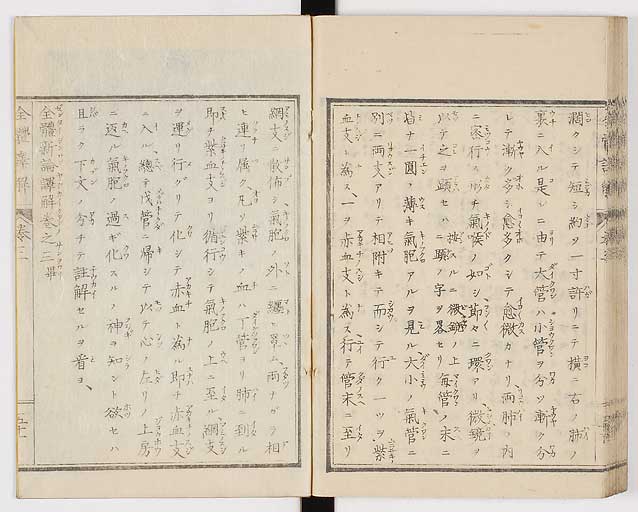 濶クシテ短シ約ヲ一寸許リニテ横ニ右ノ肺ノ
裏ニ入ル是レニ由テ大管ハ小管ヲ分ツ漸ク分
レテ漸ク多シ愈多クシテ愈微カナリ両肺ノ内
ニ密行ス形チ氣喉ノ如シ節々ニ環アリ微鏡ヲ
以テ之ヲ顕セハ 按スルニ微鏡ノ上ニ顕ノ字ヲ畧セリ 毎管ノ末ニ
皆ナ一圓ノ薄キ氣胞アルヲ見ル大小ノ氣管ニ
別ニ両支アリテ相附キテ而シテ行ク一ツヲ紫
血支ト為ス、一ヲ赤血支ト為ス行テ管末ニ至リ
網支ニ散佈シ氣胞ノ外ニ纏ヒ畧ム両ナガラ相
ヒ連リ属ク凡ソ紫キノ血ハ丁管ヨリ肺ニ到ル
即チ紫血支ヨリ循行シテ氣胞ノ上ニ至ル網支
ヲ運リ行グリテ化シテ赤血ト為ル即チ赤血支
ニ入ル總テ茂管ニ帰シテ以テ心ノ左リノ上房
ニ返ル氣胞ノ過ギ化スルノ神ヲ知ント欲セハ
且ラク下文ノ分チテ註解セルヲ看ヨ、
全體新論譯解巻之三畢